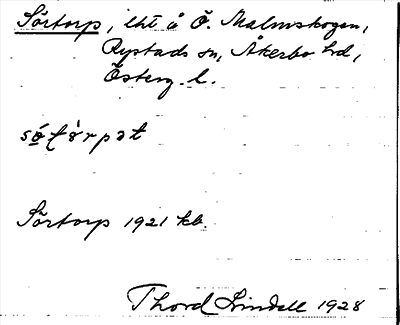 Sörtorp, lht å Ö. Malmskogen,
Rystads sn, Åkerbo hd,
Österg. l.
Sörtorp 1921 kb.
Thord Lindell 1928